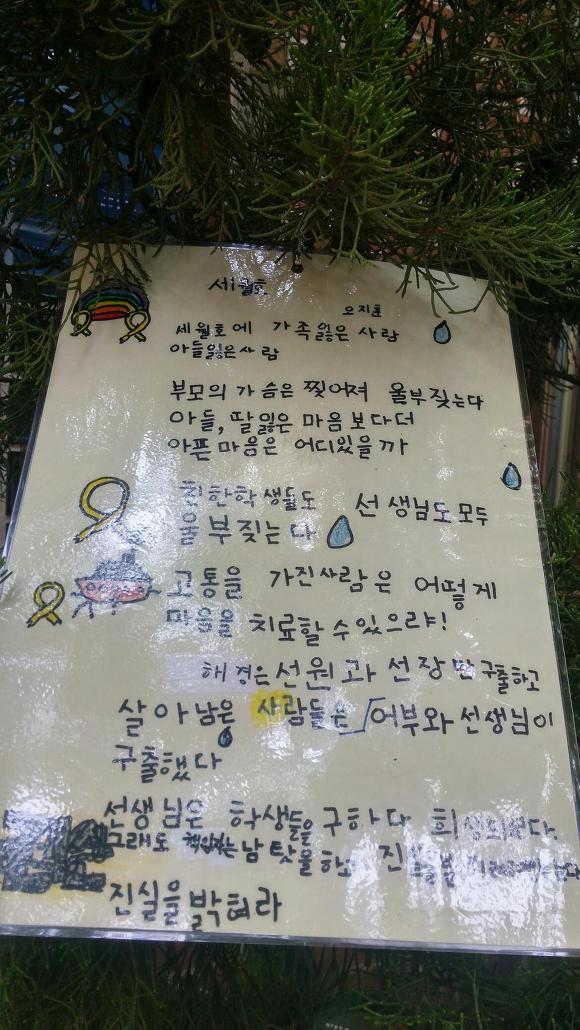 세월호
오지호
세월호에 가족잃은 사람
아들잃은사람
부모의 가슴은 찢어져 울부짖는다
아들, 딸잃은 마음보다더
아픈마음은 어디있을까
친한학생들도 선생님도모두
울부짖는다
고통을 가진사람은 어떻게
마음을 치료할 수있으랴!
해경은선원과 선장만구출하고
살아남은 사람들은 어부와선생님이
구출했다
선생님은 학생들을구하다 희생되셨다.
그래도 책임자는남탓을하고 진실을
진실을밝혀라